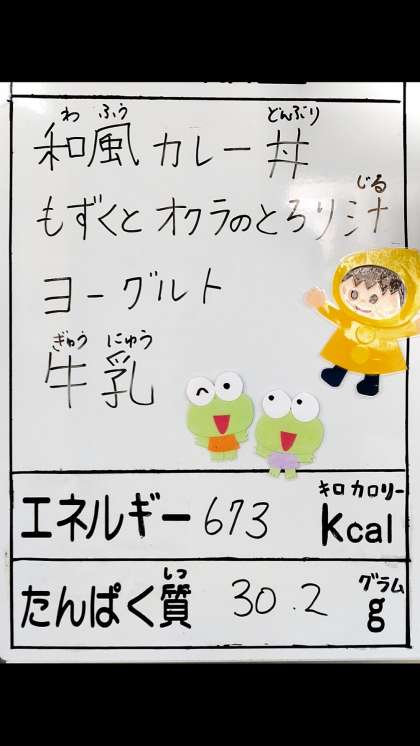 わ ふう どんぶり
和風カレー丼
じる
もずくとオクラのとろり汁
ヨーグルト
ぎゅう にゅう
牛乳
キロカロリー
エネルギー 673 Kcal
しつ グラム
たんぱく質 30.2 g